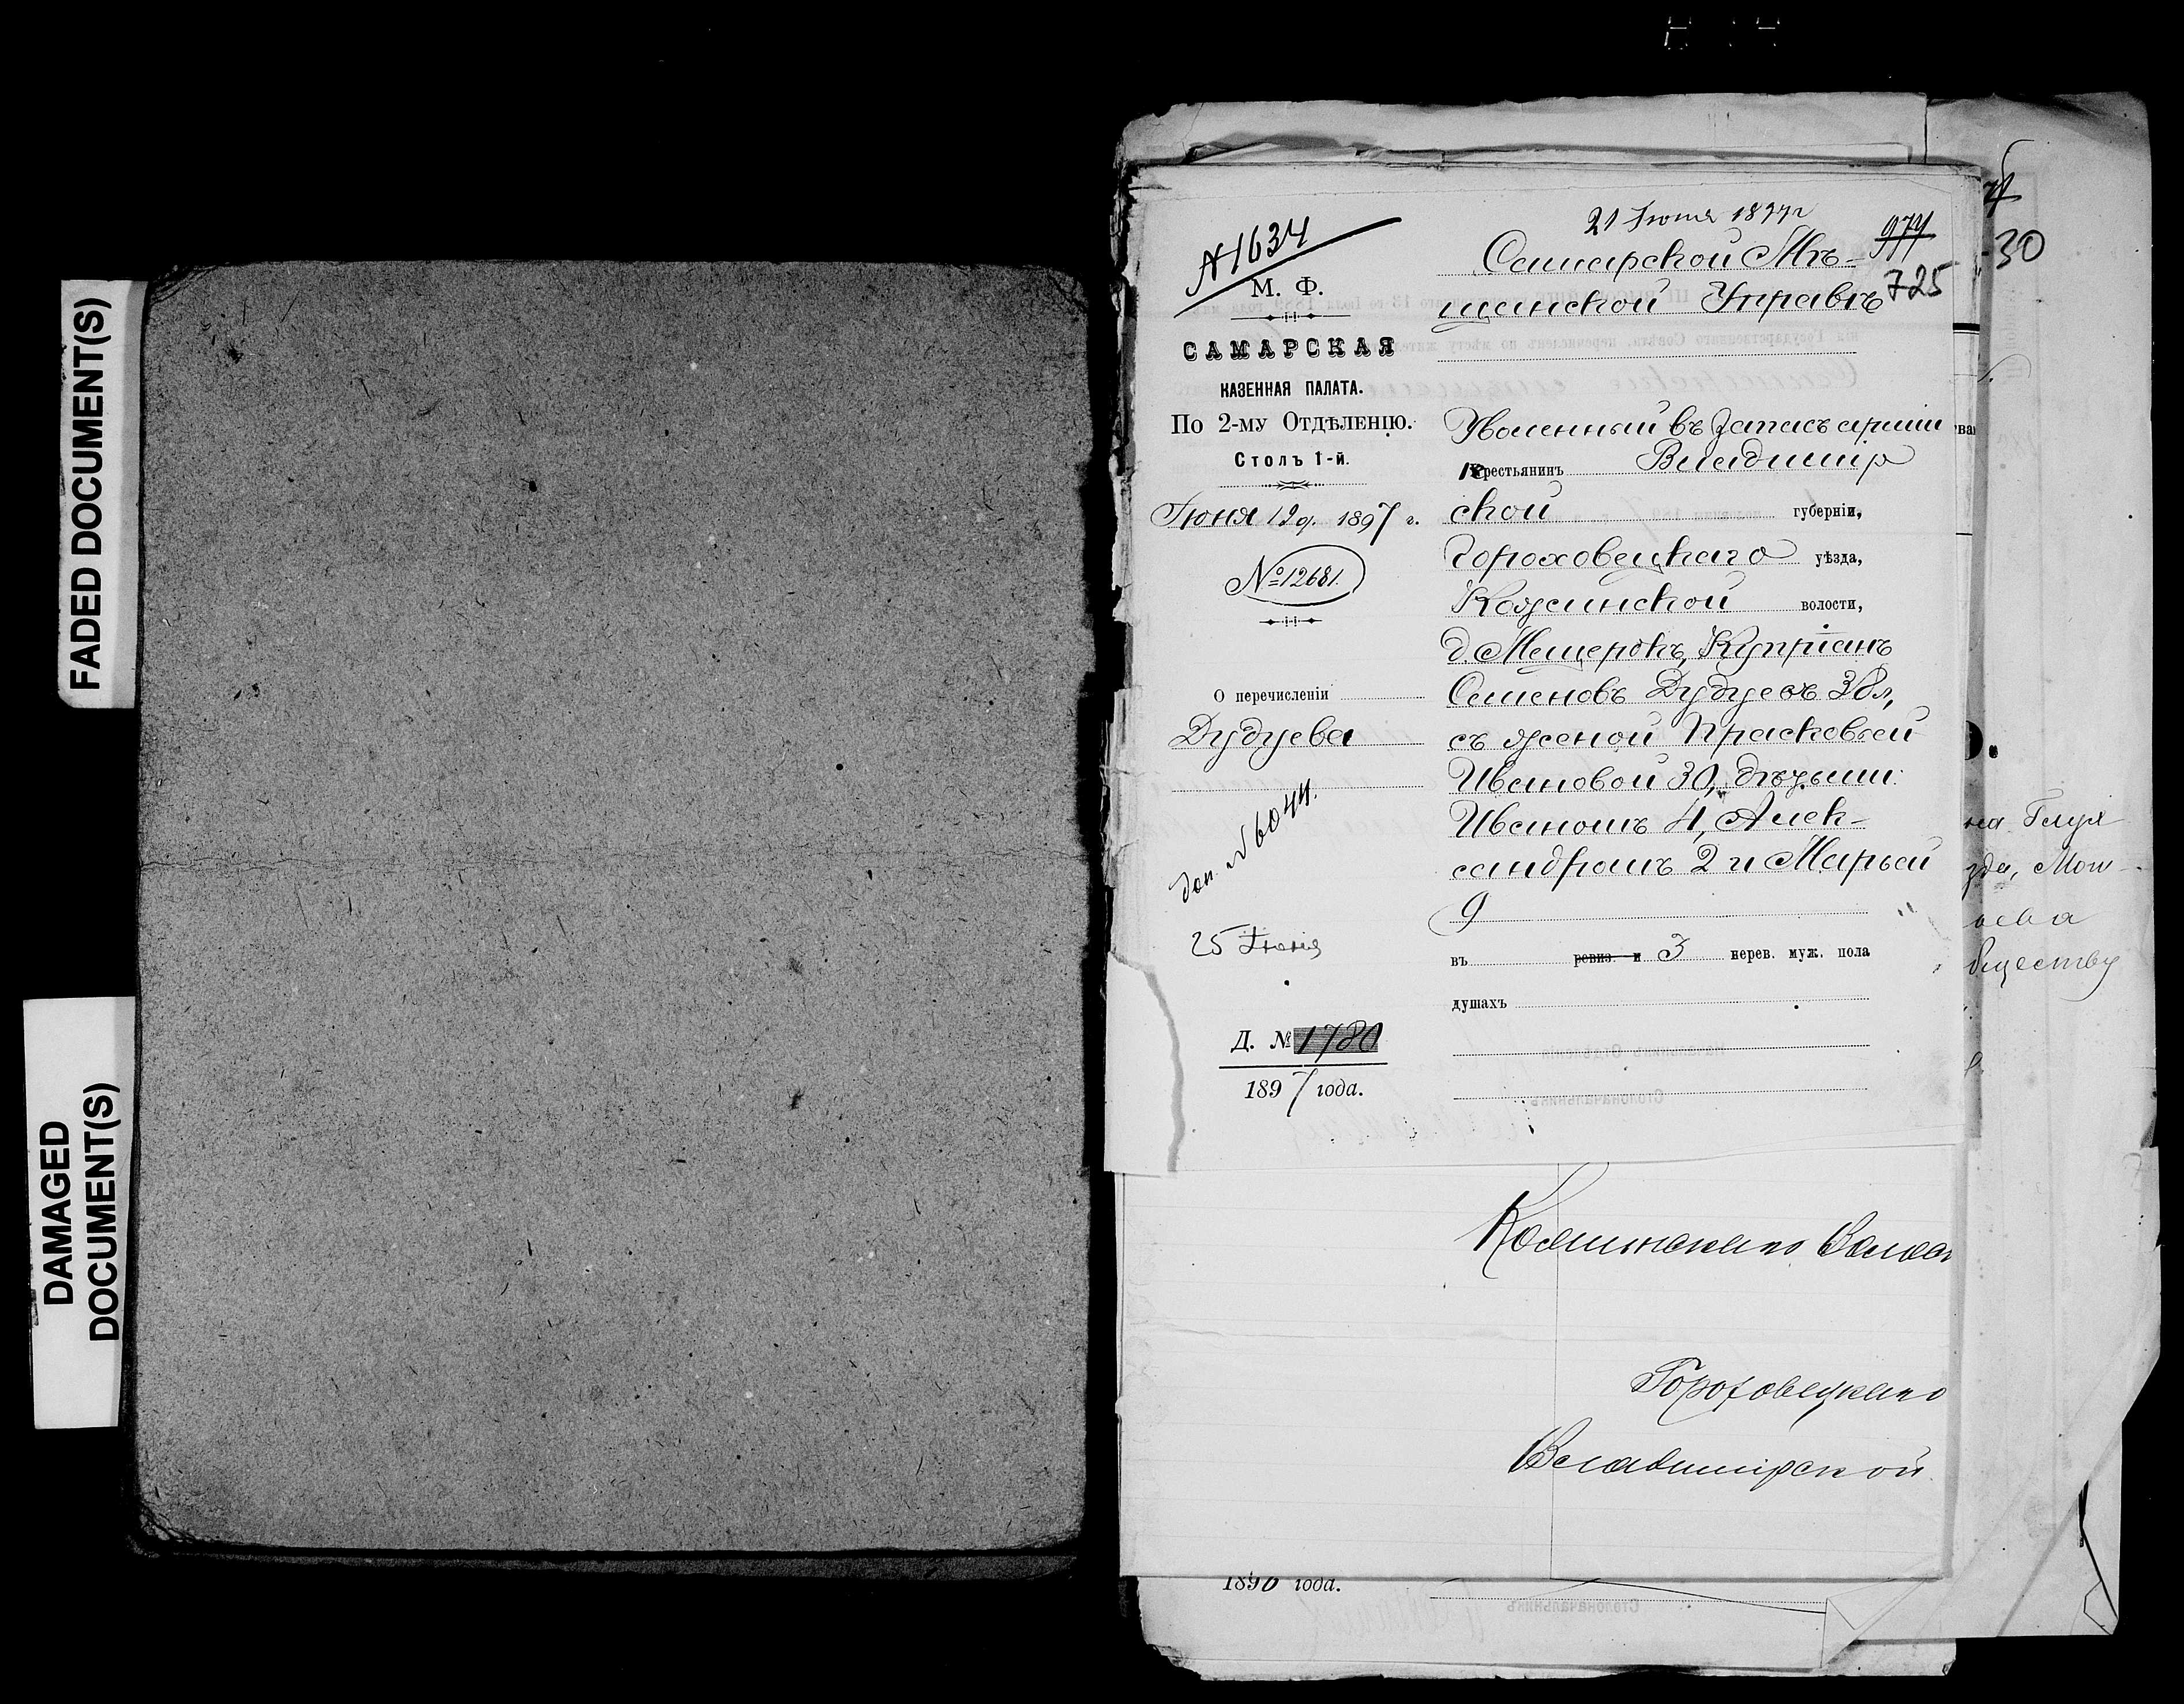 FADED DOCUMENT(S)
DAMAGED
DOCUMENT(S)
№ 1634
М. Ф.
САМАРСКАЯ
КАЗЕННАЯ ПАЛАТА.
По 2-му Отдѣленію.
Столъ 1-й.
Іюня 12 д. 1897 г.
№ 12681.
О перечисленіи
Дудуева
№ 6044.
25 Іюня
Д. № 1780
1897 года.
21 Іюня 1897 г
974
Самарской Мѣ-
щанской Управѣ
725
Уволенный въ запасъ арміи
Крестьянинъ Владимір
ской губерніи,
Гороховецкаго уѣзда,
Кожинской волости,
д. Мещеровъ, Купріанъ
Семеновъ Дудуевъ 38 л,
съ женой Прасковьей
Ивановой 30, дѣтьми:
Иваномъ 4, Алек-
сандромъ 2 и Марьей
9
въ ревиз. и 3 нерев. муж. пола
душахъ
30
зда,
бществу
Гороховецкаго
Владимірской
189 года.